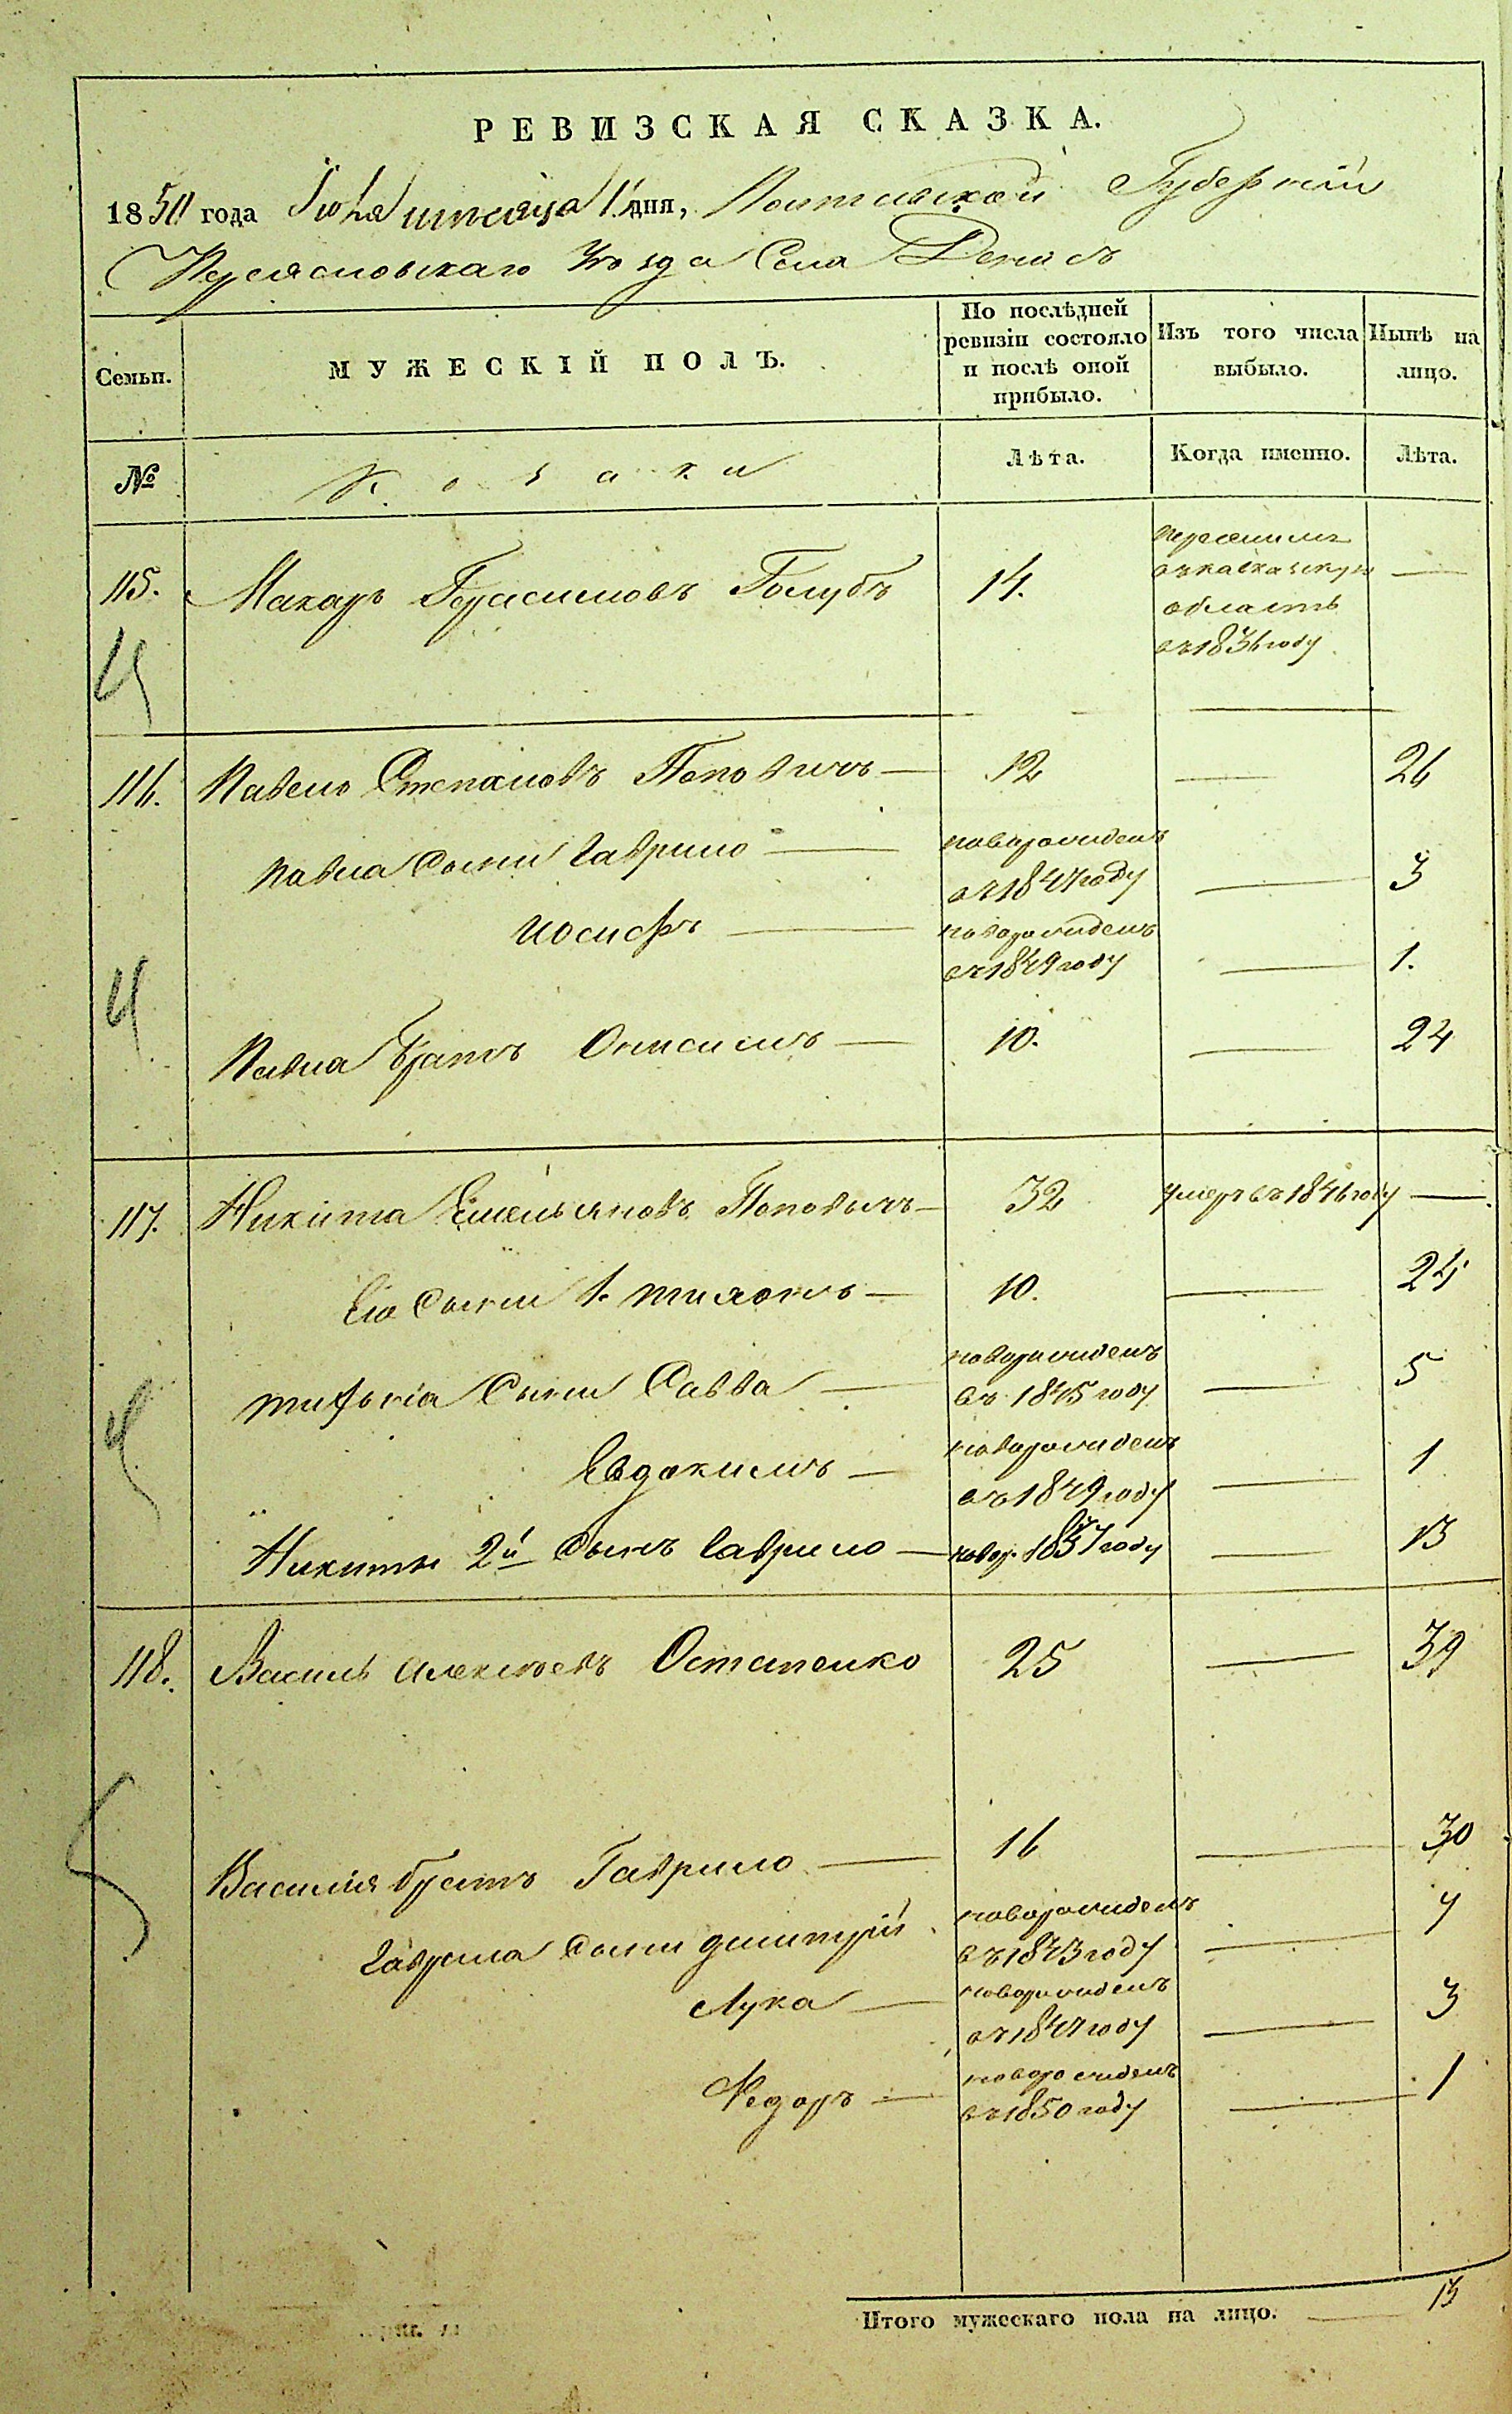 РЕВИЗСКАЯ СКАЗКА.
1850 года Іюля месяца 1 дня, Полтавской Губерніи
Переясловскаго Уезда Села Денис
Семьи. МУЖЕСКІЙ ПОЛЪ. По послѣдней ревизіи состояло и послѣ оной прибыло. Изъ того числа выбыло. Нынѣ на лицо.
№ Козаки Лѣта. Когда именно. Лѣта.
115. Макаръ Герасимовъ Голубъ 14. переселилъ
въ кавказкую —
область
въ 1836 году
4
116. Павело Степановъ Поповичъ — 12 — 26
Павла Сыни Гаврило — новорожденъ
въ 1847 году — 3
Иосифъ — новорожденъ
въ 1849 году — 1.
4
Павла Братъ Онисимъ — 10. — 24
117. Никита Емельяновъ Поповичъ — 32 умеръ въ 1846 году —
Его Сыни 1. Тихонъ — 10. — 24
Тихона Сыни Савва — новорожденъ
въ 1845 году — 5
4
Евдокимъ — новорожденъ
въ 1849 году — 1
Никиты 2й Сынъ Гаврило — новор. 1837 году — 13
118. Василь Алексеевъ Остапенко 25 — 39
5
Василия братъ Гаврило — 16 — 30
Гаврила Сыни дмитрий новорожденъ
въ 1843 году — 7
Лука — новорожденъ
въ 1847 году — 3
Федоръ — новорожденъ
въ 1850 году — 1
Итого мужескаго пола на лицо. — 13